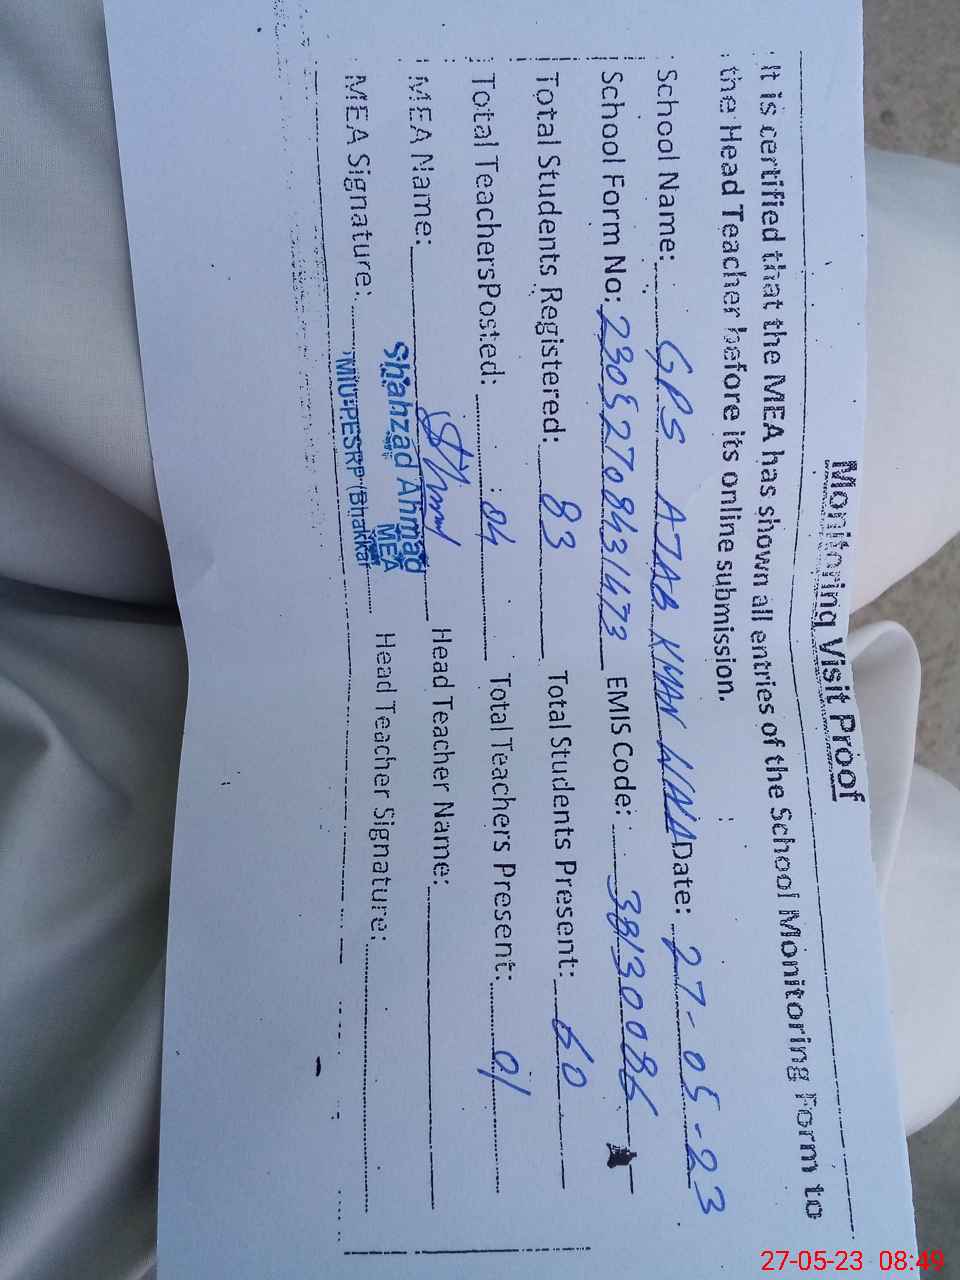 Monitoring Visit Proof
It is certified that the MEA has shown all entries of the School Monitoring Form to
the Head Teacher before its online submission.
School Name: GPS AJAB KHAN WINA Date: 27-05-23
School Form No: 23052708431473 EMIS Code: 38130086
Total Students Registered: 83 Total Students Present: 60
Total TeachersPosted: 04 Total Teachers Present: 01
MEA Name: Head Teacher Name:
Shahzad Ahmad
MEA
MEA Signature: Head Teacher Signature:
MIU:PESRP (Bhakkar
27-05-23 08:49